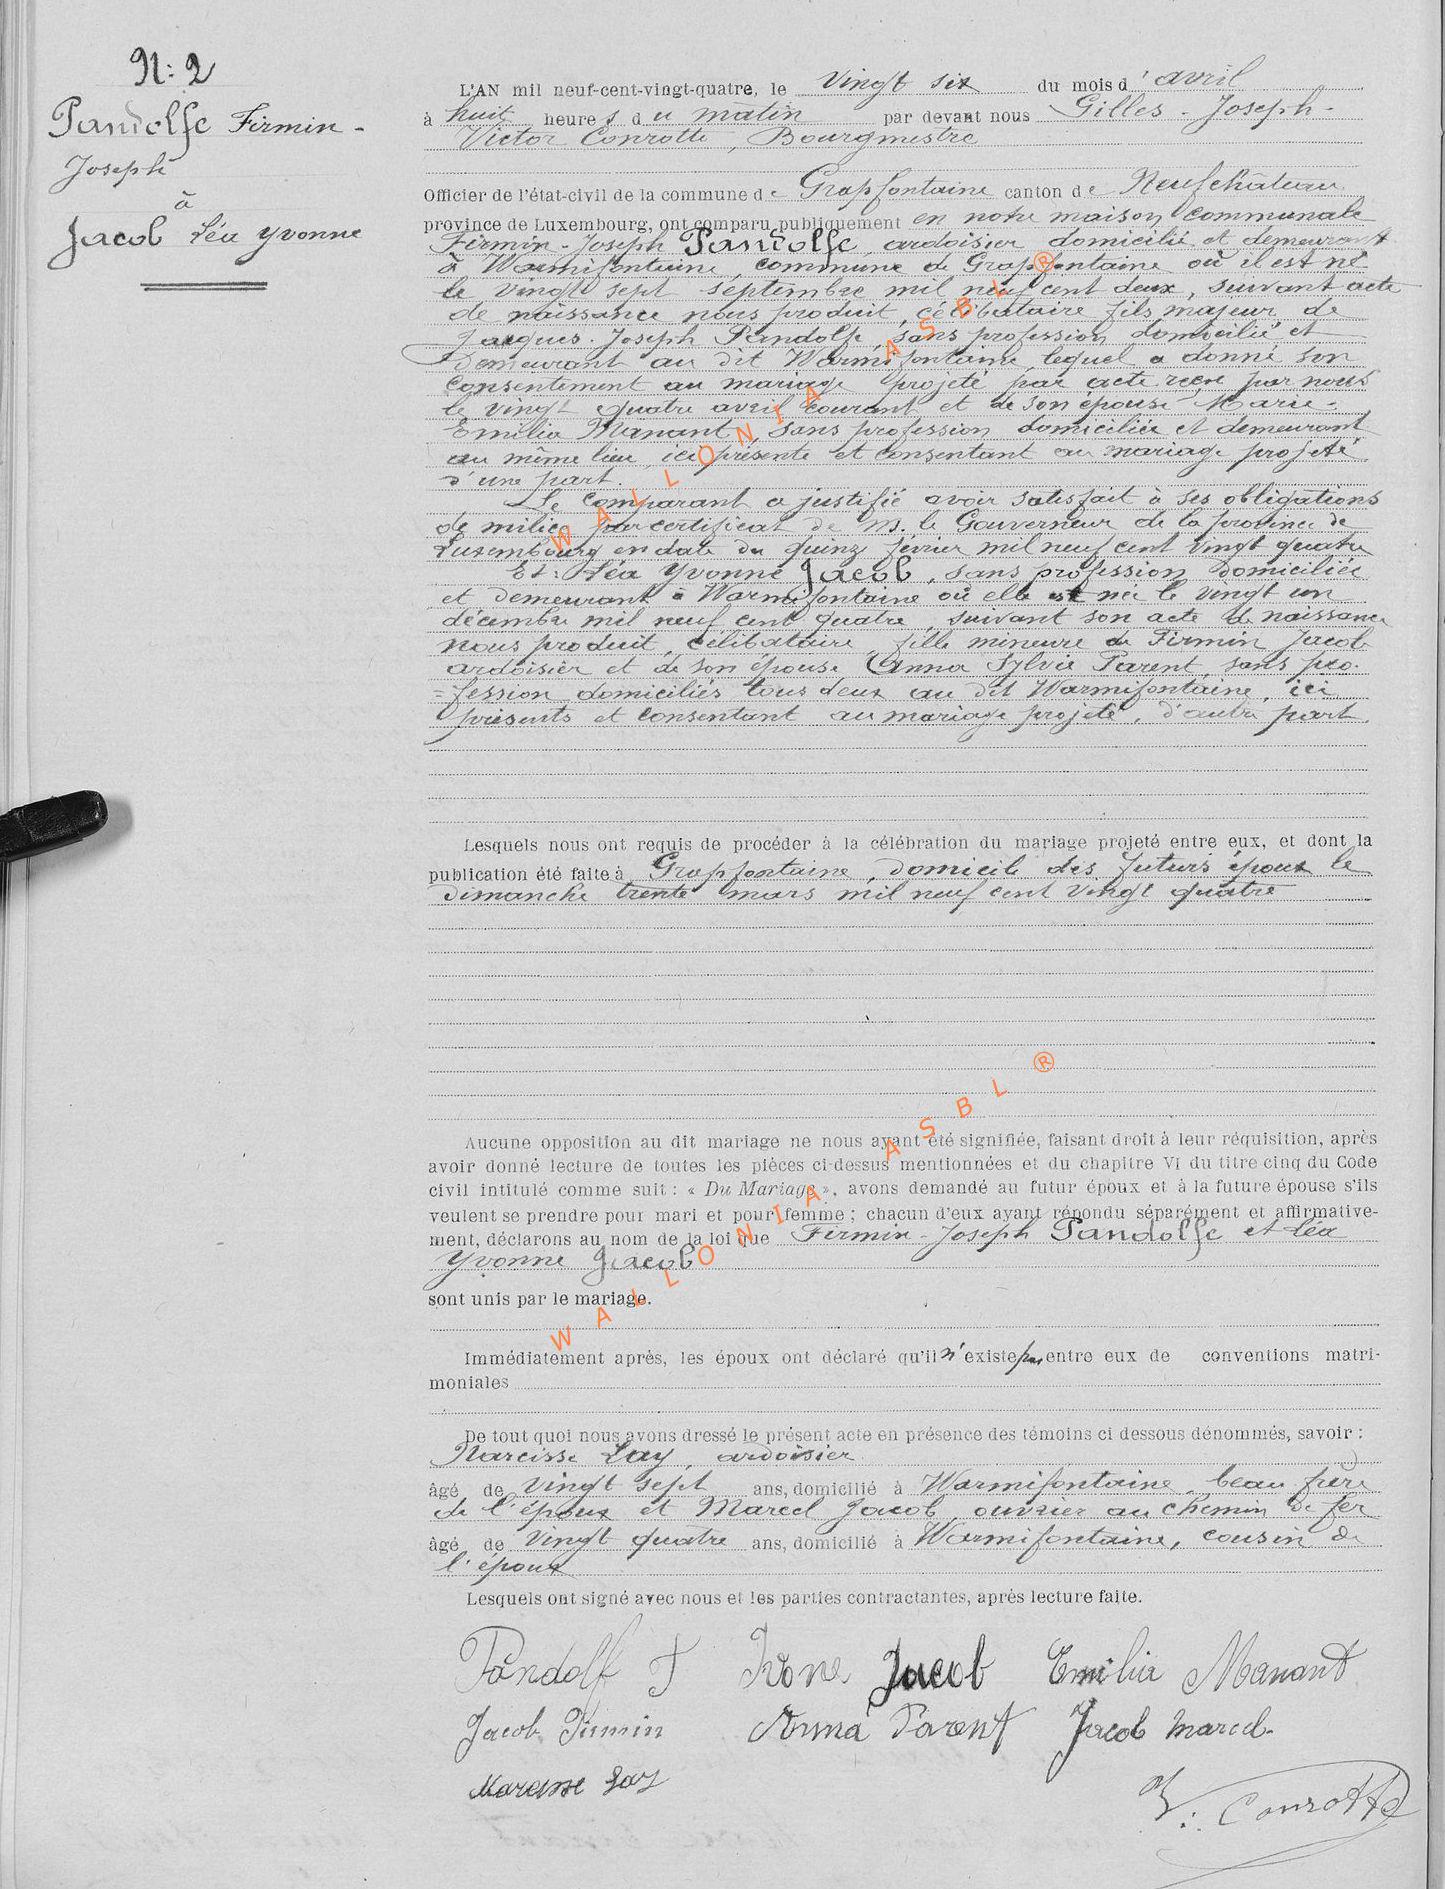 N: 2
Pandolfe Firmin-
Joseph
à
Jacob Léa Yvonne
L'AN mil neuf-cent-vingt-quatre, le vingt six du mois d'avril
à huit heures du matin par devant nous Gilles-Joseph-
Victor Conrotte, Bourgmestre
Officier de l'état-civil de la commune de Grapfontaine canton de Neufchâteau
province de Luxembourg, ont comparu publiquement en notre maison communale
Firmin-Joseph Pandolfe, ardoisier domicilié et demeurant
à Warmifontaine, commune de Grapfontaine où il est né
le vingt sept septembre mil neuf cent deux, suivant acte
de naissance nous produit, célibataire fils majeur de
Jacques-Joseph Pandolfe, sans profession domicilié et
demeurant au dit Warmifontaine, lequel a donné son
consentement au mariage projeté par acte reçu par nous
le vingt quatre avril courant et de son épouse Marie-
Emilia Manant, sans profession domiciliée et demeurant
au même lieu, ici présente et consentant au mariage projeté
d'une part.
Le comparant a justifié avoir satisfait à ses obligations
de milice par certificat de M. le Gouverneur de la province de
Luxembourg en date du quinze février mil neuf cent vingt quatre
Et: Léa Yvonne Jacob, sans profession domiciliée
et demeurant à Warmifontaine où elle est née le vingt un
décembre mil neuf cent quatre, suivant son acte de naissance
nous produit, célibataire, fille mineure de Firmin Jacob
ardoisier et de son épouse Anna Sylvie Parent, sans pro-
=fession domiciliés tous deux au dit Warmifontaine, ici
présents et consentant au mariage projeté, d'autre part.
Lesquels nous ont requis de procéder à la célébration du mariage projeté entre eux, et dont la
publication été faite à Grapfontaine, domicile des futurs époux le
dimanche trente mars mil neuf cent vingt quatre
Aucune opposition au dit mariage ne nous ayant été signifiée, faisant droit à leur réquisition, après
avoir donné lecture de toutes les pièces ci-dessus mentionnées et du chapitre VI du titre cinq du Code
civil intitulé comme suit : « Du Mariage », avons demandé au futur époux et à la future épouse s'ils
veulent se prendre pour mari et pour femme ; chacun d'eux ayant répondu séparément et affirmative-
ment, déclarons au nom de la loi que Firmin-Joseph Pandolfe et Léa
Yvonne Jacob
sont unis par le mariage.
Immédiatement après, les époux ont déclaré qu'il n'existe pas entre eux de conventions matri-
moniales
De tout quoi nous avons dressé le présent acte en présence des témoins ci dessous dénommés, savoir :
Narcisse Lay, ardoisier
âgé de vingt sept ans, domicilié à Warmifontaine, beau frère
de l'époux et Marcel Jacob ouvrier au chemin de fer
âgé de vingt quatre ans, domicilié à Warmifontaine, cousin de
l'époux
Lesquels ont signé avec nous et les parties contractantes, après lecture faite.
Pandolf F Ivone Jacob Emilia Manant
Jacob Firmin Anna Parent Jacob Marcel
Narcisse Lay
V. Conrotte
WALLONIA ASBL ®
WALLONIA ASBL ®